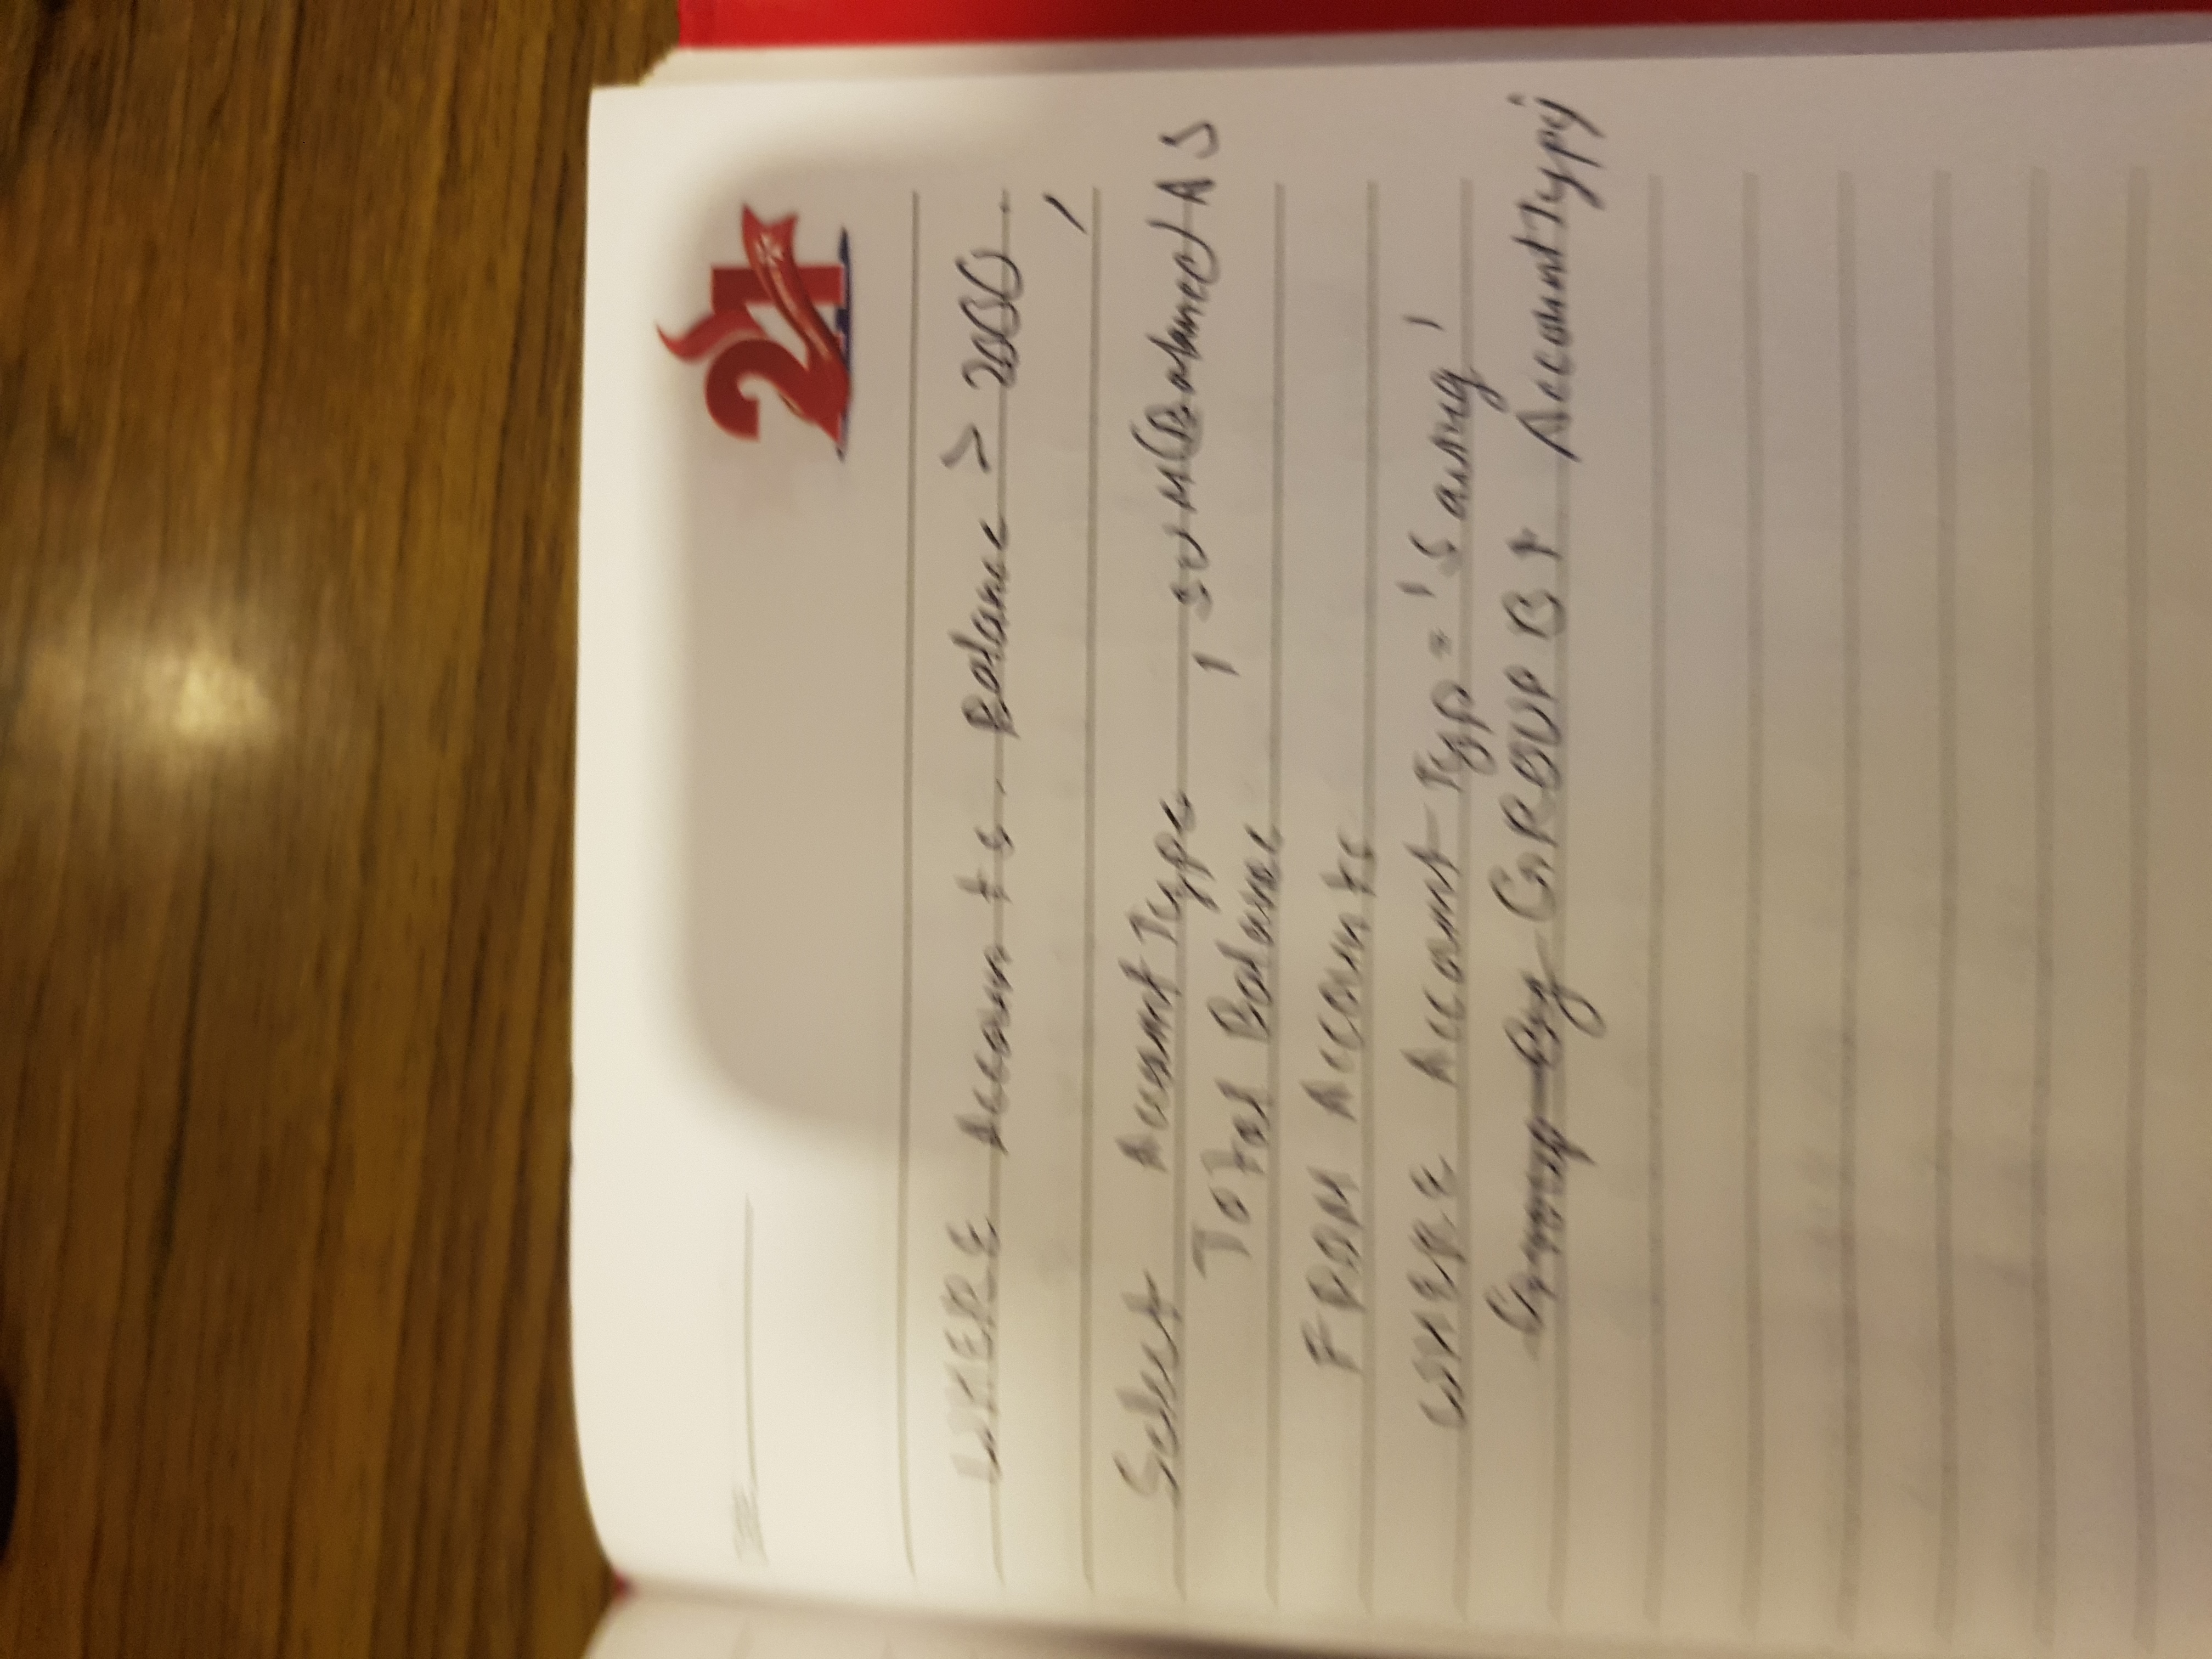 21
WHERE Accounts. Balance > 2000.
,
Select AccountType , SUM(Balance) AS
Total Balance
FROM Accounts
WHERE Account Typ = 'Saving'
Group By GROUP BY AccountType;